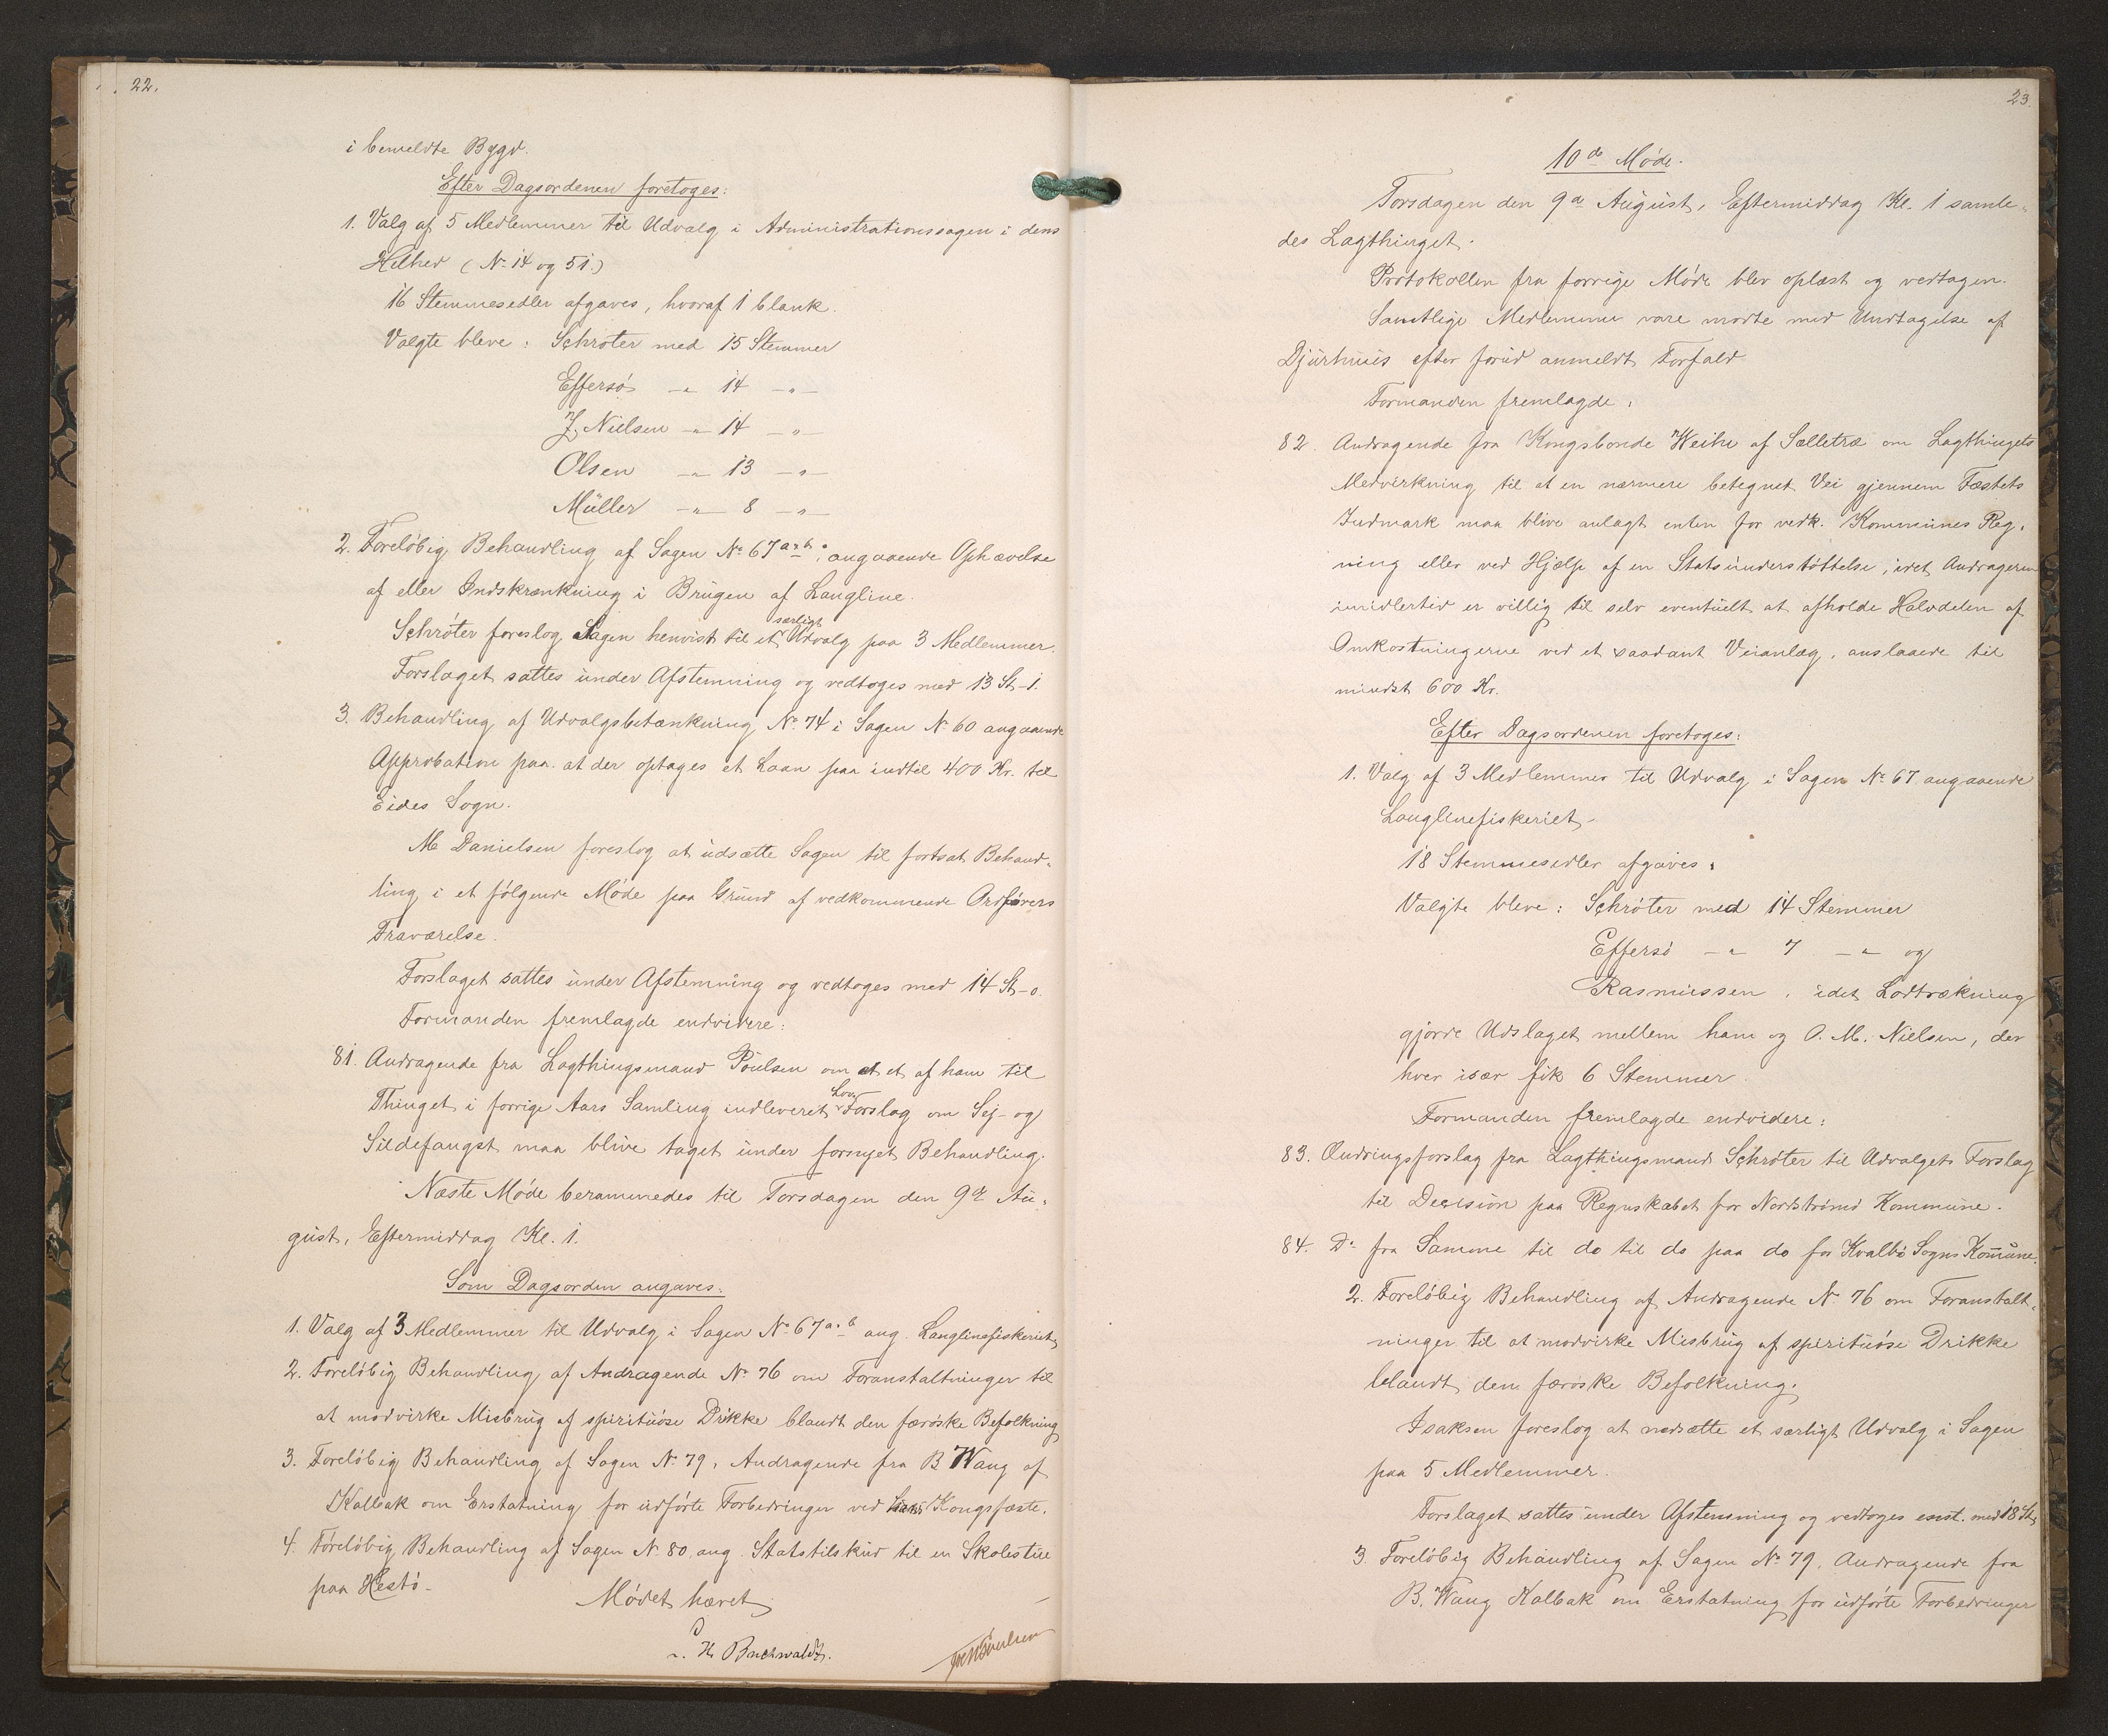 22.
i bemeldte Bygd.
Efter Dagsordenen foretoges:
1. Valg af 5 Medlemmer til Udvalg i Administrationssagen i dens
Helhed (No 14 og 51.)
16 Stemmesedler afgaves, hvoraf 1 blank.
Valgte bleve: Schrøter med 15 Stemmer
Effersø —"— 14 —"—
J. Nielsen —"— 14 —"—
Olsen —"— 13 —"—
Müller —"— 8 —"—
2. Foreløbig Behandling af Sagen No 67 a-b. angaaende Ophævelse
af eller Indskrænkning i Brugen af Langline.
Schrøter foreslog Sagen henvist til et særligt Udvalg paa 3 Medlemmer.
Forslaget sattes under Afstemning og vedtoges med 13 St-1.
3. Behandling af Udvalgsbetænkning No 74 i Sagen No 60 angaaende
Approbation paa at der optages et Laan paa indtil 400 Kr. til
Eides Sogn.
M Danielsen foreslog at udsætte Sagen til fortsat Behand-
ling i et følgende Møde paa Grund af vedkommende Ordførers
Fraværelse.
Forslaget sattes under Afstemning og vedtoges med 14 St-0.
Formanden fremlagde endvidere:
81. Andragende fra Lagthingsmand Poulsen om at et af ham til
Thinget i forrige Aars Samling indleveret Lov Forslag om Sej- og
Sildefangst maa blive taget under fornyet Behandling.
Næste Møde berammedes til Torsdagen den 9de Au-
gust, Eftermiddag Kl. 1.
Som Dagsorden angaves:
1. Valg af 3 Medlemmer til Udvalg i Sagen No 67 a-b ang. Langlinefiskeriet
2. Foreløbig Behandling af Andragende No 76 om Foranstaltninger til
at modvirke Misbrug af spirituøse Drikke blandt den færøske Befolkning
3. Foreløbig Behandling af Sagen No 79, Andragende fra B Wang af
Kalbak om Erstatning for udførte Forbedringer ved hans Kongsfæste.
4. Foreløbig Behandling af Sagen No 80 ang. Statstilskud til en Skolestue
paa Hestø.
Mødet hævet
H Buchwaldt.
23.
10de Møde.
Torsdagen den 9de August, Eftermiddag Kl. 1 samle-
des Lagthinget.
Protokollen fra forrige Møde blev oplæst og vedtagen.
Samtlige Medlemmer vare mødte med Undtagelse af
Djurhuus efter forud anmeldt Forfald.
Formanden fremlagde:
82. Andragende fra Kongsbonde Weihe af Selletræ om Lagthingets
Medvirkning til at en nærmere betegnet Vei gjennem Fæstets
Indmark maa blive anlagt enten for vedk. Kommunes Reg-
ning eller ved Hjælp af en Statsunderstøttelse, idet Andrageren
imidlertid er villig til selv eventuelt at afholde Halvdelen af
Omkostningerne ved et saadant Veianlæg, anslaaede til
mindst 600 Kr.
Efter Dagsordenen foretoges:
1. Valg af 3 Medlemmer til Udvalg i Sagen No 67 angaaende
Langlinefiskeriet.
18 Stemmesedler afgaves.
Valgte bleve: Schrøter med 14 Stemmer
Effersø —"— 7 —"— og
Rasmussen, idet Lodtrækning
gjorde Udslaget mellem ham og O. M. Nielsen, der
hver især fik 6 Stemmer.
Formanden fremlagde endvidere:
83. Ændringsforslag fra Lagthingsmand Schrøter til Udvalgets Forslag
til Decision paa Regnskabet for Nordstrømø Kommune.
84. Do fra Samme til do til do paa do for Kvalbø Sogns Kom̄une.
2. Foreløbig Behandling af Andragende No 76 om Foranstalt-
ninger til at modvirke Misbrug af spirituøse Drikke
blandt den færøske Befolkning.
Isaksen foreslog at nedsætte et særligt Udvalg i Sagen
paa 5 Medlemmer.
Forslaget sattes under Afstemning og vedtoges enst. med 18 St.
3. Foreløbig Behandling af Sagen No 79. Andragende fra
B. Wang Kalbak om Erstatning for udførte Forbedringer